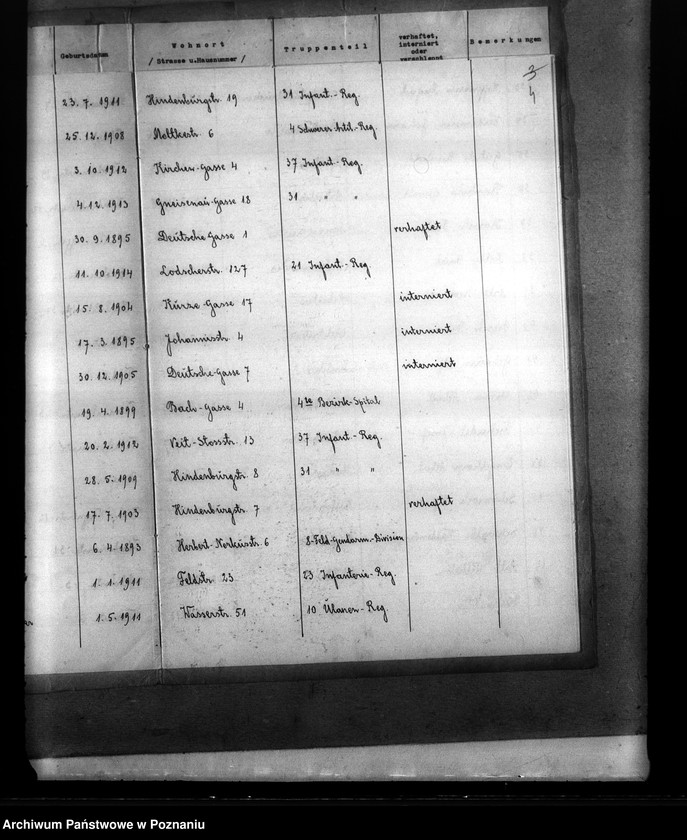 Geburtsdatum Wohnort /Strasse u.Hausnummer/ Truppenteil verhaftet, interniert oder verschleppt Bemerkungen
3
4
23.7.1911 Hindenburgstr. 19 31 Infant.-Reg.
25.12.1908 Moltkestr. 6 4 Schwerer Artil.-Reg.
3.10.1912 Kirchen-Gasse 4 37 Infant.-Reg.
4.12.1913 Gneisenau-Gasse 18 31 "
30.9.1895 Deutsche Gasse 1 verhaftet
11.10.1914 Lodscherstr. 127 21 Infant.-Reg.
15.8.1904 Kurze-Gasse 17 interniert
17.3.1895 Johannisstr. 4 interniert
30.12.1905 Deutsche-Gasse 7 interniert
19.4.1899 Bach-Gasse 4 4te Bezirk-Spital
20.2.1912 Veit-Stossstr. 13 37 Infant.-Reg.
28.5.1909 Hindenburgstr. 8 31 " "
17.7.1903 Hindenburgstr. 7 verhaftet
6.4.1893 Herbert-Norkusstr. 6 8-Feld-Gendarm.-Division
1.1.1911 Feldstr. 23 23 Infanterie-Reg.
1.5.1911 Wasserstr. 51 10 Ulanen-Reg.
Archiwum Państwowe w Poznaniu